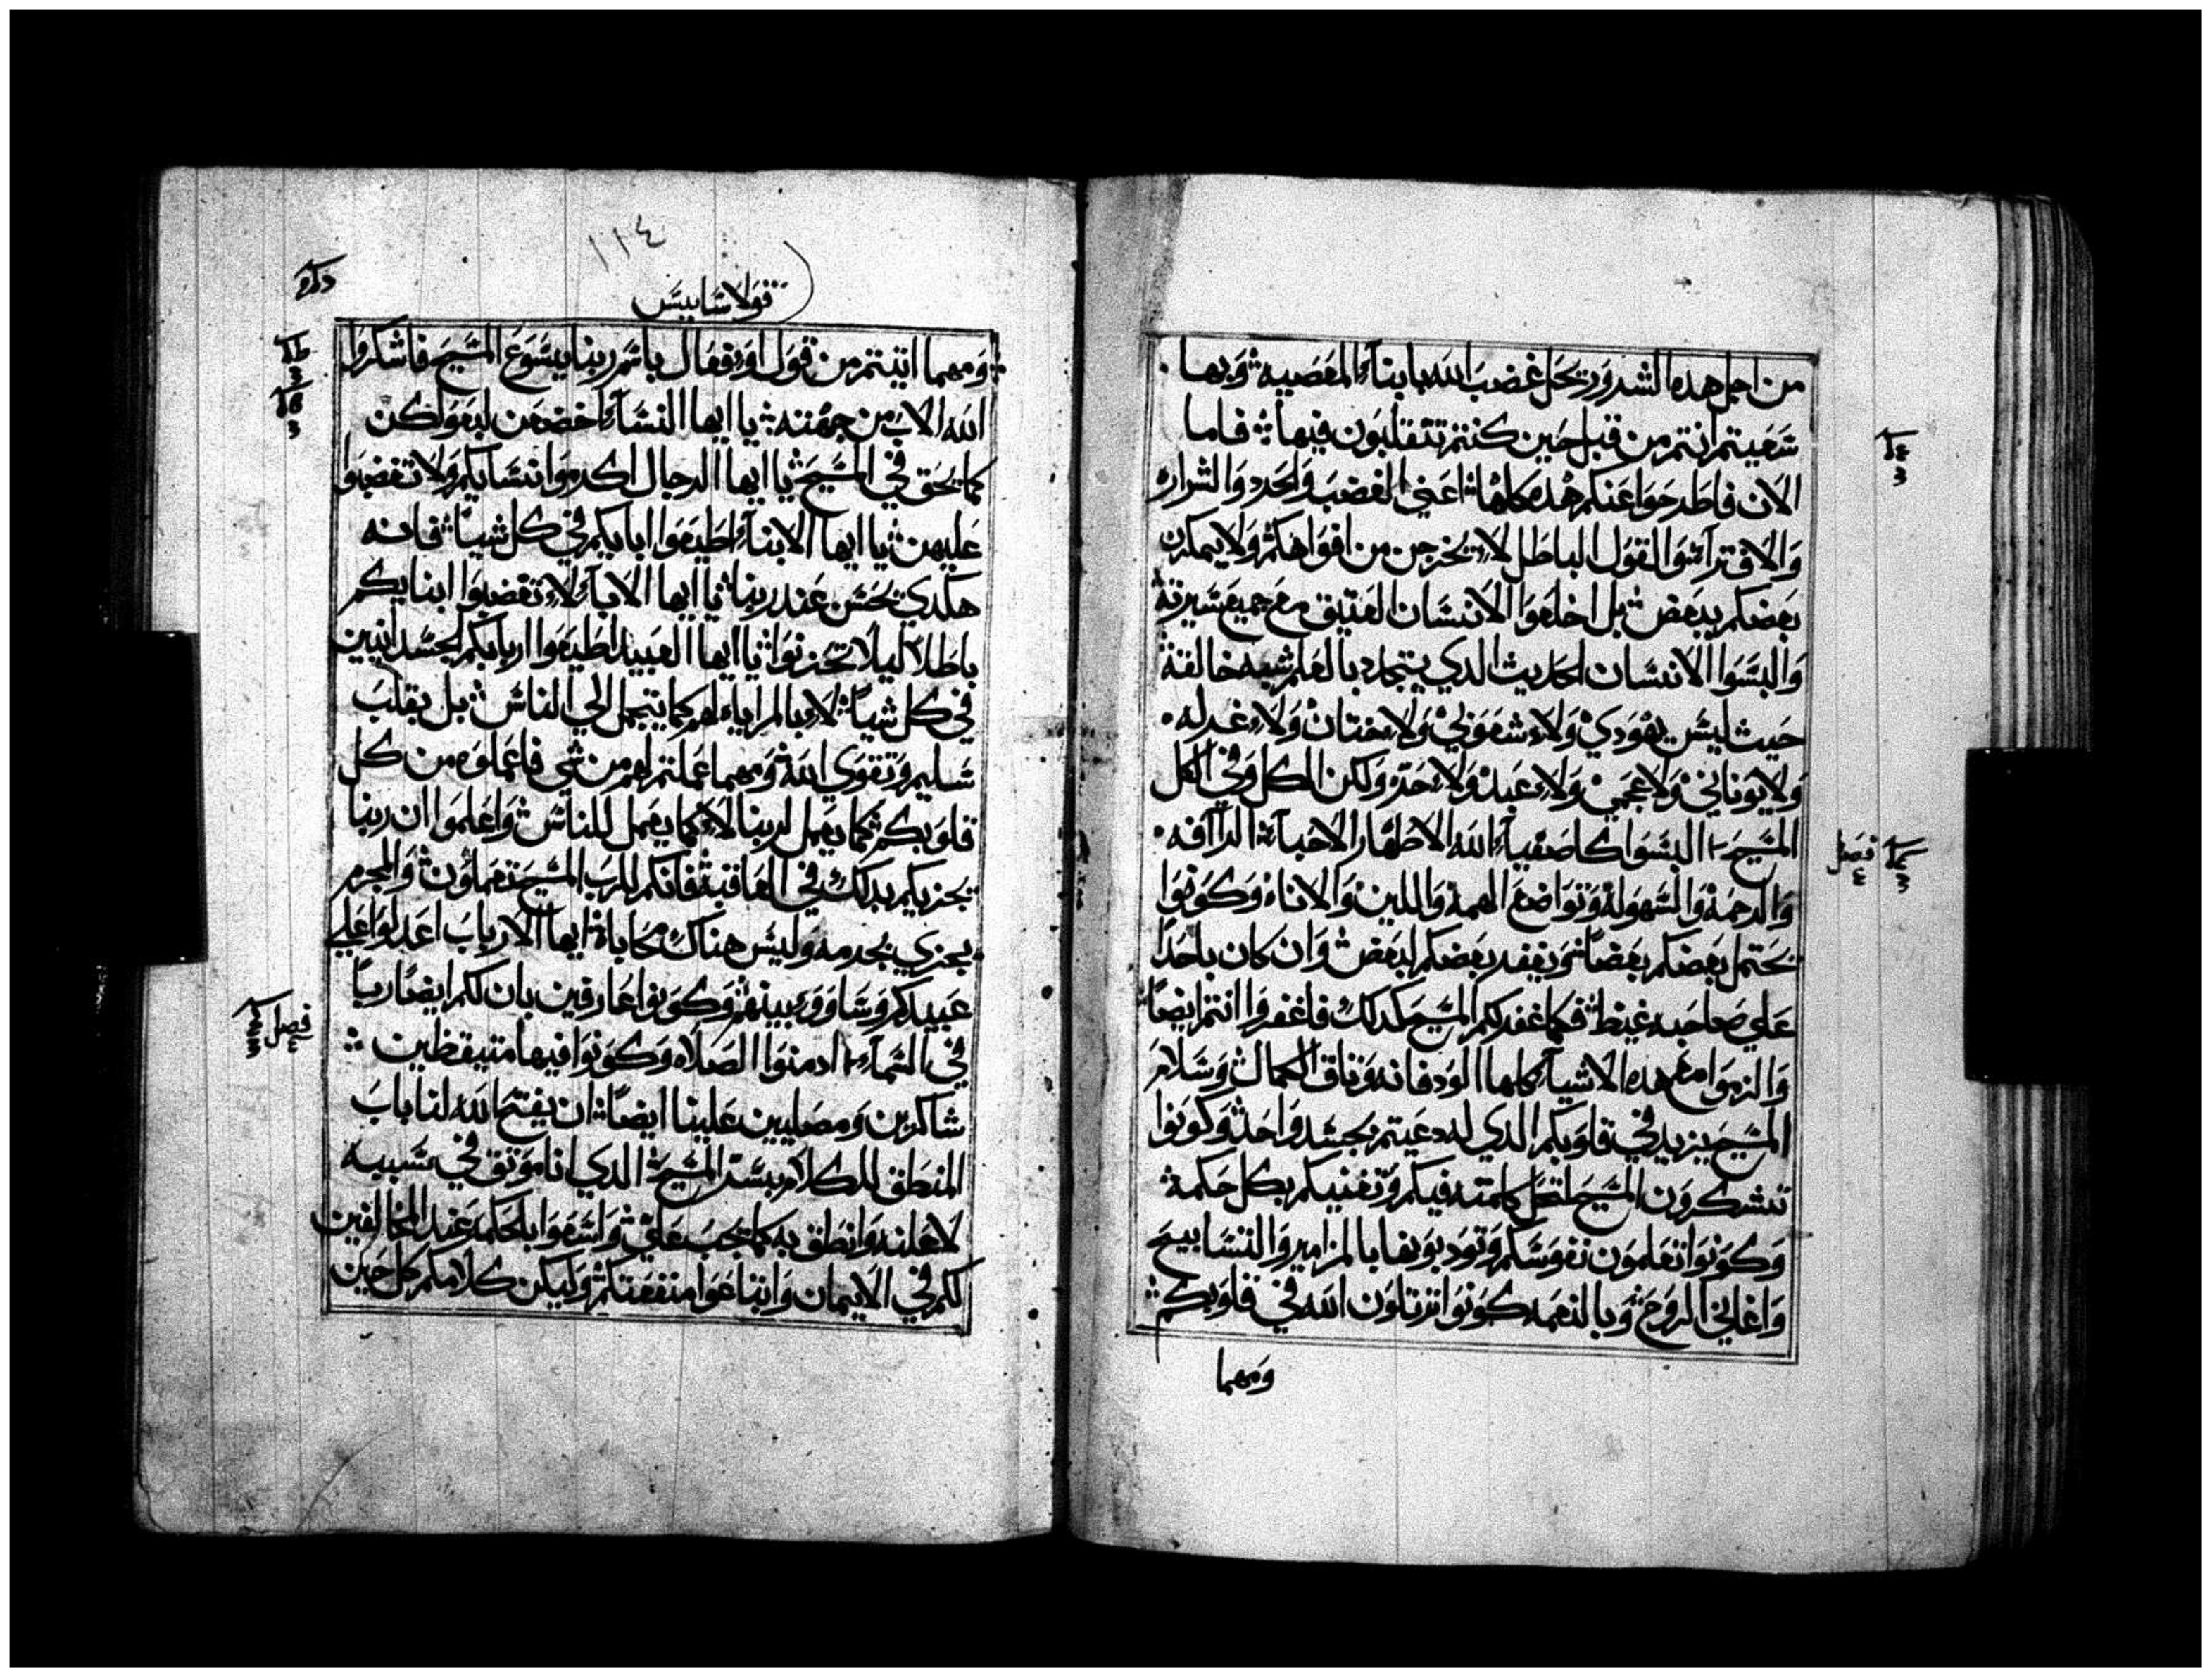 من اجل هده الشرور يحل غضب الله بابنآء المعصيه وبها
سعيتم انتم من قبل حين كنتم تتقلبون فيها فاما
الان فاطرحوا عنكم هده كلها اعني الغضب والحرد والشراره
والافترآ والقول الباطل لا يخرجن من افواهكم ولا يمكرن
بعضكم ببعض بل اخلعوا الانسان العتيق مع جميع سيرته
والبسوا الانسان الحديث الدي يتجدد بالعلم شبه خالقه
حيث ليس يهودي ولا شعوبي ولا ختان ولا غرله
ولا يوناني ولا عجمي ولا عبد ولا حر ولكن الكل وفي الكل
المسيح البسوا كاصفيآء الله الاطهار الاحبآء الرآافه
والرحمه والسهوله وتواضع الهمه واللين والاناه وكونوا
يحتمل بعضكم بعضا ويغفر بعضكم لبعض وان كان باحدا
علي صاحبه غيظ فكما غفر لكم المسيح كدلك فاغفروا انتم ايضا
والزموا مع هده الاشيآء كلها الود فانه وتاق الكمال وسلام
المسيح يزيد في قلوبكم الدي له دعيتم بجسد واحد وكونوا
تشكرون المسيح لتحل كلمته فيكم وتغنيكم بكل حكمه
وكونوا تعلمون نفوسكم وتودبونها بالمزامير والتسابيح
واغاني الروح وبالنعمه كونوا ترتلون الله في قلوبكم
ومهما
١١٤
قولاسايس
ومهما اتيتم من قول او فعال باسم ربنا يسوع المسيح فاشكروا
الله الاب من جهته يا ايها النسآء اخضعن لبعولكن
كما يحق في المسيح يا ايها الرجال اكرموا نسايكم ولا تغضبوا
عليهن يا ايها الابنآء اطيعوا ابايكم في كل شيا فانه
هكدي يحسن عند ربنا يا ايها الابآء لا تغضبوا ابنايكم
باطلا ليلا تحزنوا يا ايها العبيد اطيعوا اربابكم الجسدانيين
في كل شيا لا بالمراياه لهم كما يتجمل الي الناس بل بقلب
سليم وتقوي الله ومهما عملتم لهم من شي فاعملوه من كل
قلوبكم كما يعمل لربنا لا كما يعمل للناس واعلموا ان ربنا
يجزيكم بدلك في العاقبه فانكم للرب المسيح تعملون والمجرم
يجزي بجرمه وليس هناك محاباه ايها الارباب اعدلوا علي
عبيدكم وساووا بينهم وكونوا عارفين بان لكم ايضا ربا
في السمآء ادمنوا الصلاه وكونوا فيها متيقظين
شاكرين ومصليين علينا ايضا ان يفتح الله لنا باب
المنطق للكلام بسر المسيح الدي انا موتق في سببه
لاعلنه وانطق به كما يجب علي واسعوا بالحكمه عند المخالفين
لكم في الايمان وابتاعوا منفعتكم وليكن كلامكم كل حين
فصل
فصل